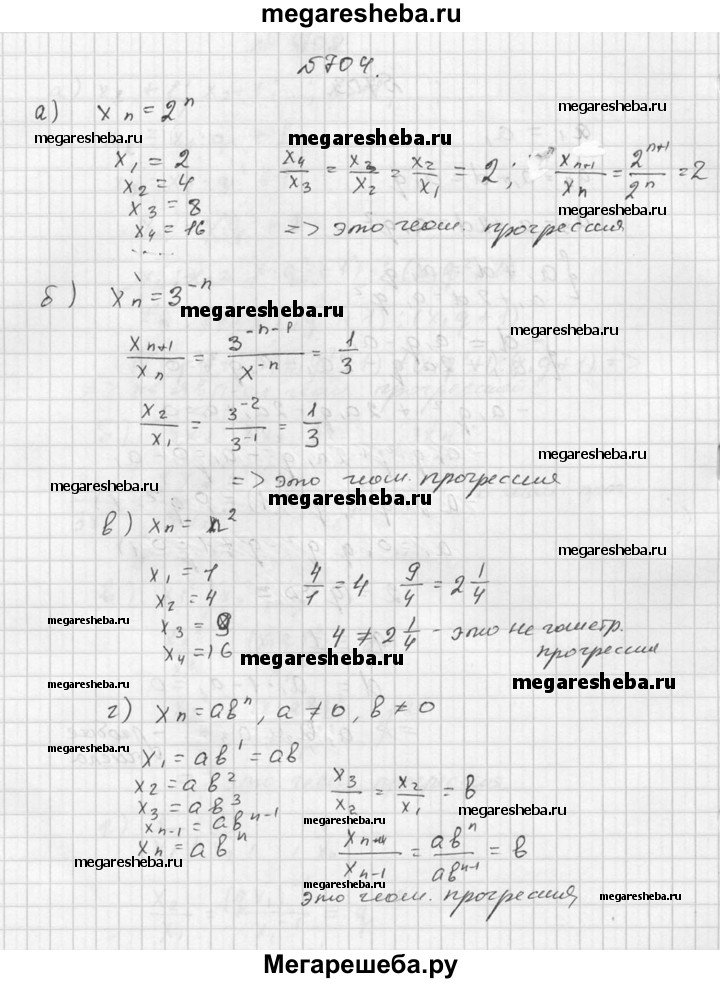 megaresheba.ru
№704.
а) xₙ = 2ⁿ
megaresheba.ru
megaresheba.ru megaresheba.ru
x₁ = 2
x₂ = 4
x₃ = 8
x₄ = 16
.....
x₄/x₃ = x₃/x₂ = x₂/x₁ = 2; xₙ₊₁/xₙ = 2ⁿ⁺¹/2ⁿ = 2
megaresheba.ru
=> это геом. прогрессия
б) xₙ = 3⁻ⁿ
megaresheba.ru
megaresheba.ru
xₙ₊₁/xₙ = 3⁻ⁿ⁻¹/x⁻ⁿ = 1/3
x₂/x₁ = 3⁻²/3⁻¹ = 1/3
megaresheba.ru
=> это геом. прогрессия
megaresheba.ru
megaresheba.ru
в) xₙ = n²
megaresheba.ru
x₁ = 1
x₂ = 4
x₃ = 9
x₄ = 16
4/1 = 4 9/4 = 2 1/4
megaresheba.ru
megaresheba.ru
4 ≠ 2 1/4 - это не геометр.
прогрессия
megaresheba.ru
megaresheba.ru
г) xₙ = abⁿ, a ≠ 0, b ≠ 0
megaresheba.ru
x₁ = ab¹ = ab
x₂ = ab²
x₃ = ab³
xₙ₋₁ = abⁿ⁻¹
xₙ = abⁿ
x₃/x₂ = x₂/x₁ = b
megaresheba.ru
megaresheba.ru
megaresheba.ru
= abⁿ/abⁿ⁻¹ = b
megaresheba.ru
это геом. прогрессия
megaresheba.ru
Мегарешеба.ру